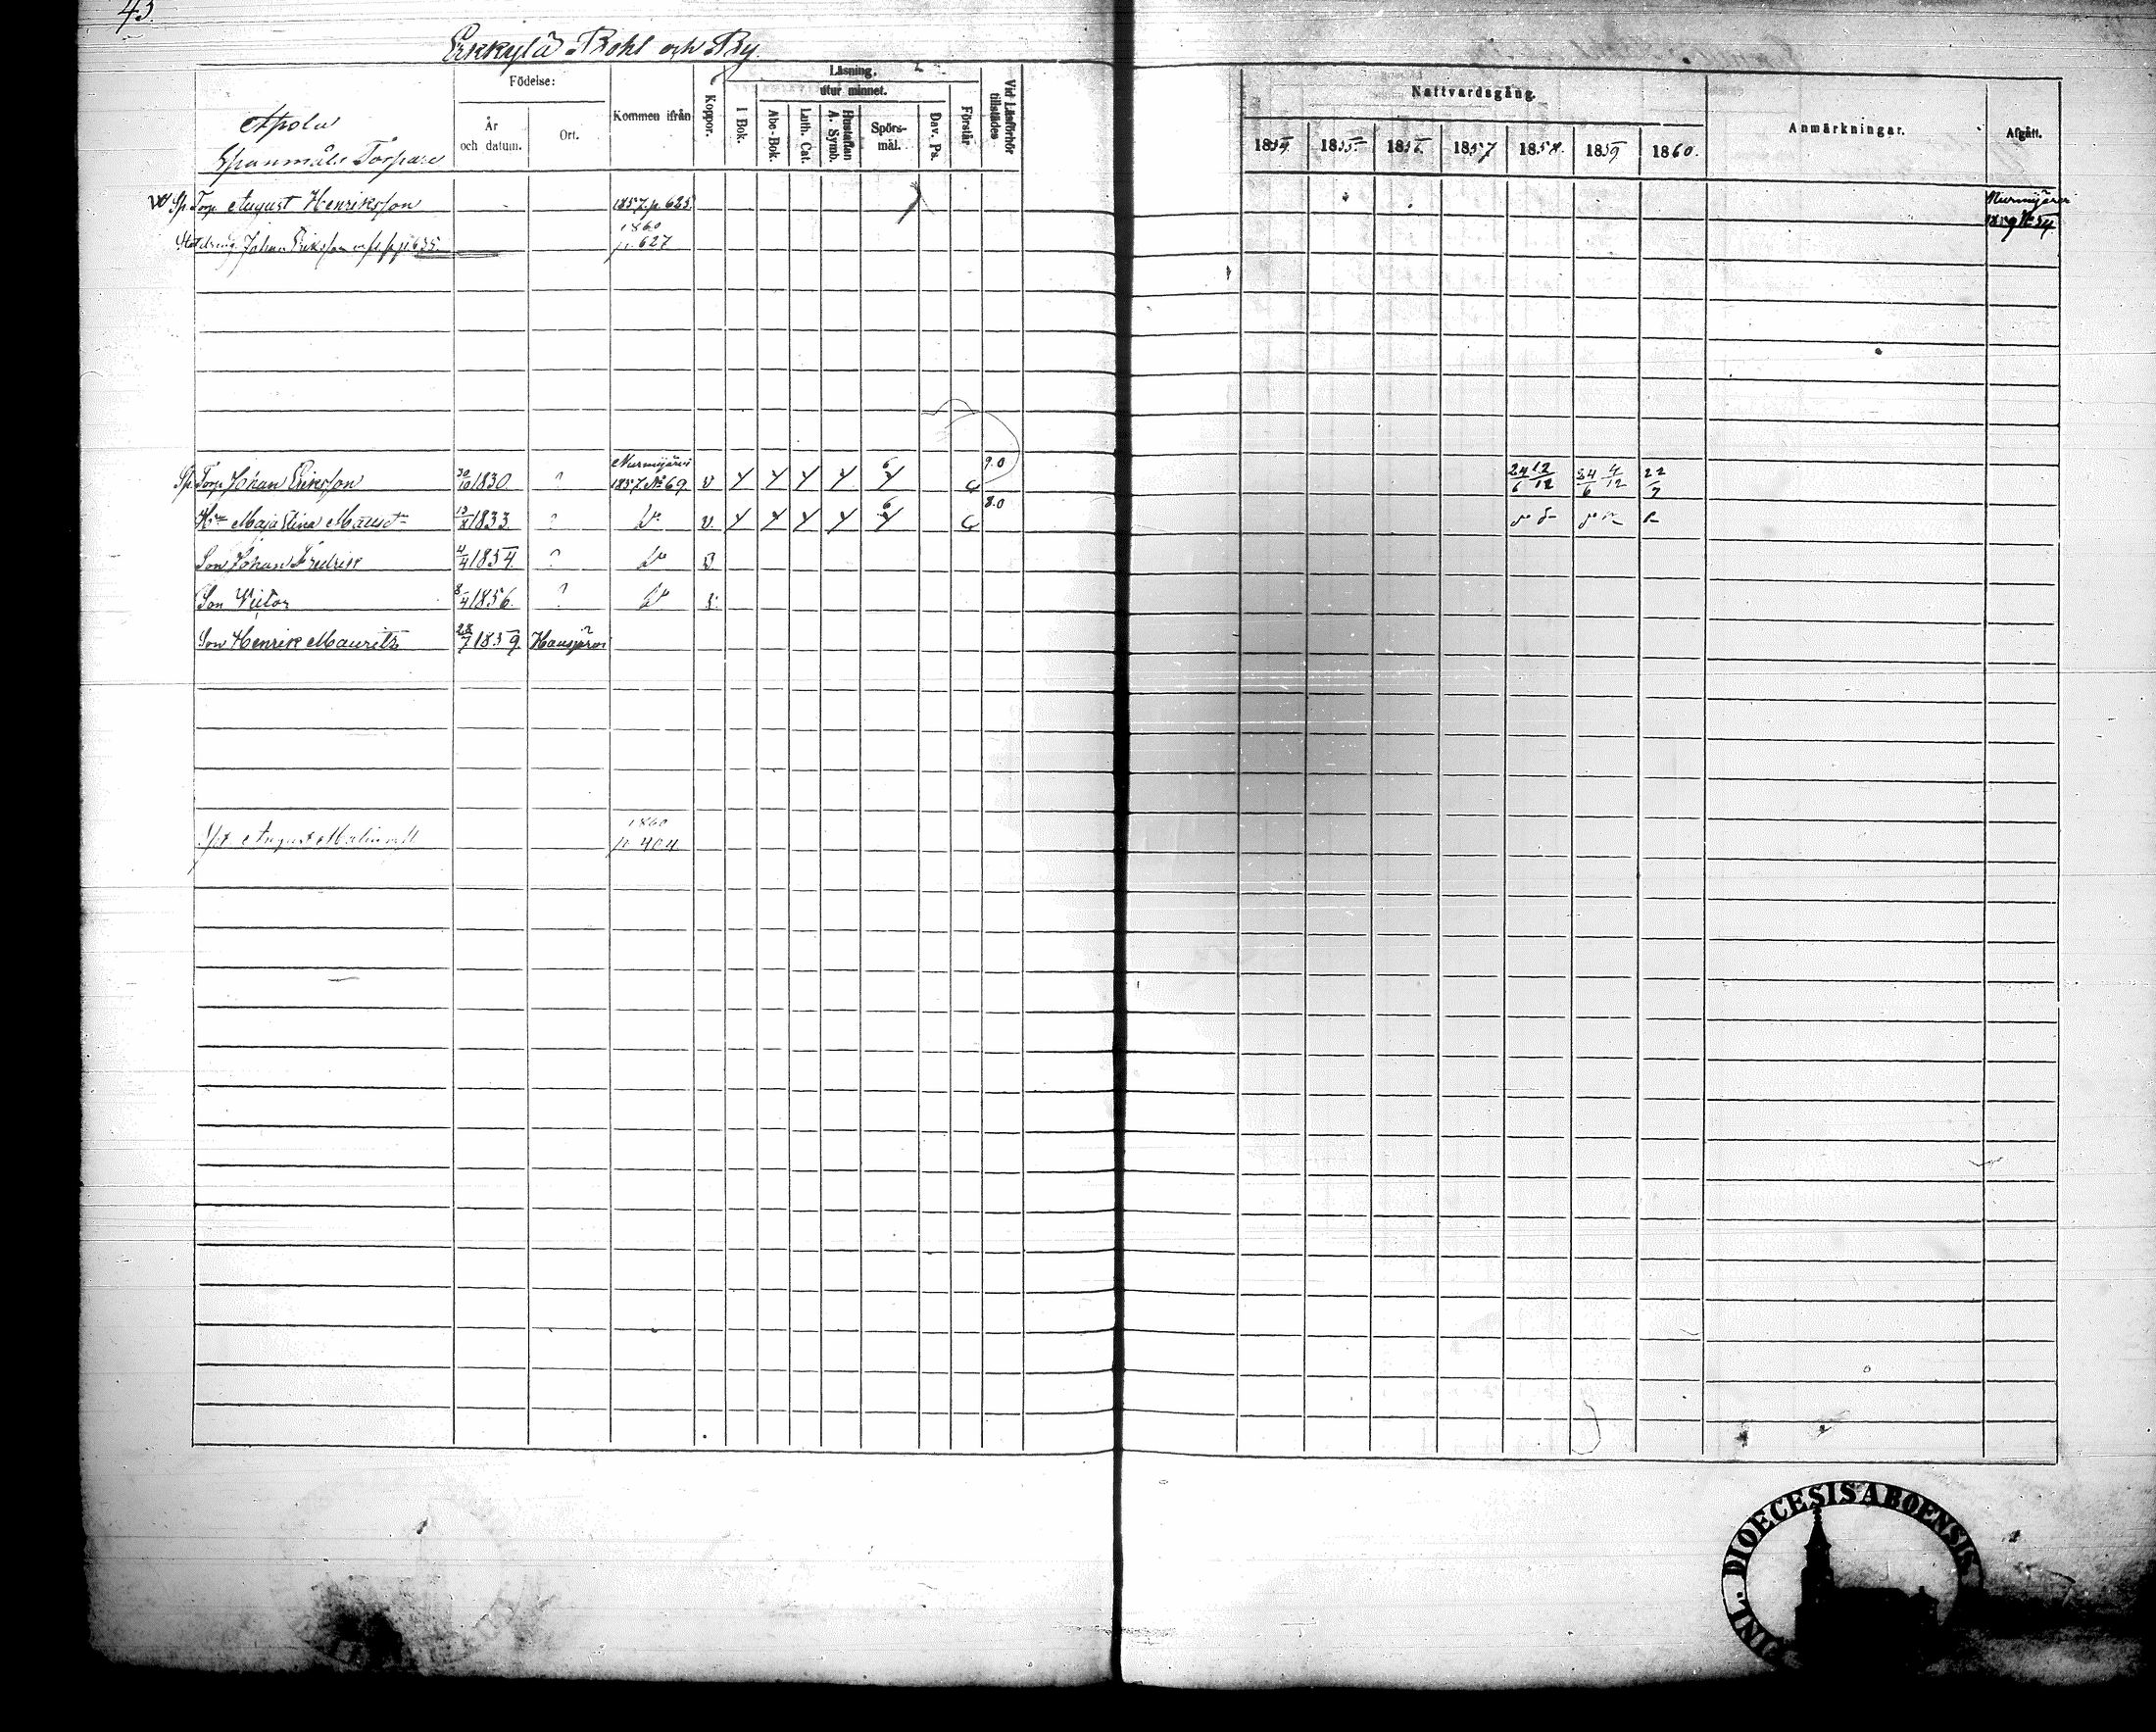 43.
Erkkylä Bohl och By.
Apola
Spanmåls Torpare
Födelse:
År och datum.
Ort.
Kommen ifrån
Koppor.
Läsning.
utur minnet.
I Bok.
Abc-Bok.
Luth. Cat.
Hustaflan A. Symb.
Spörs-mål.
Dav. Ps.
Förstår
Vid Läsförhör tillstädes
Nattvardsgång.
1854 1855 1856 1857 1858. 1859 1860.
Anmärkningar.
Afgått.
Sp. Torp. August Henriksson 1857. p. 625. Nurmijärvi
1859 № 54
Johan Eriksson p. 635. 1860 p. 627
Sp. Torp. Johan Eriksson 30/10 1830. ? Nurmijärvi 1857. № 69. v 6 9.0 24/6 12/12 24/6 4/12 22/7
Maja Stina 1833. ? v. 6 8.0
Son Johan Fredrik 4/4 1854. ? v
Son Victor 8/4 1856. ?
Son Henrik Mauritz 28/7 1859. Hausjärvi
August 1860 p. 404
DIOECESIS ABOENSIS